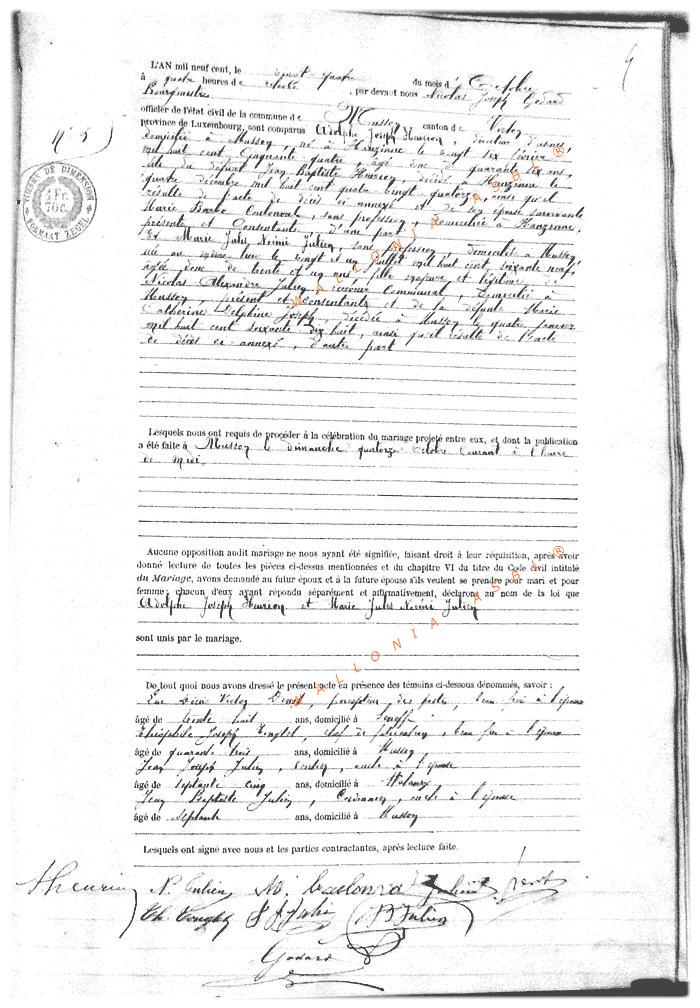 L'AN mil neuf cent, le vingt quatre du mois d'Octobre
à quatre heures de relevée, par devant nous Nicolas Joseph Godard
Bourgmestre
officier de l'état civil de la commune de Musson canton de Virton
province de Luxembourg, sont comparus Adolphe Joseph Henrion, directeur d'usines
domicilié à Musson, né à Hanzinne le vingt six février
mil huit cent cinquante quatre, âgé donc de quarante six ans,
fils du défunt Jean Baptiste Henrion, décédé à Hanzinne le
quatre décembre mil huit cent quatre vingt quatorze, ainsi qu'il
résulte de l'acte de décès ci annexé et de son épouse survivante
Marie Barbe, sans profession, domiciliée à Hanzinne,
présente et Consentante d'une part
Et Marie Jules Noémi Julien, sans profession, domiciliée à Musson
née au même lieu le vingt et un juillet mil huit cent soixante neuf,
âgée donc de trente et un ans, fille majeure et légitime de
Nicolas Alexandre Julien, receveur Communal, domicilié à
Musson, présent et consentant et de la défunte Marie
Catherine Delphine Joseph, décédée à Musson le quatre janvier
mil huit cent soixante dix huit, ainsi qu'il résulte de l'acte
de décès ci-annexé, d'autre part
N° 5
TIMBRE DE DIMENSION
1 Fr.
70c.
FORMAAT ZEGEL
Lesquels nous ont requis de procéder à la célébration du mariage projeté entre eux, et dont la publication
a été faite à Musson le dimanche quatorze Octobre courant à l'heure
de midi.
Aucune opposition audit mariage ne nous ayant été signifiée, faisant droit à leur réquisition, après avoir
donné lecture de toutes les pièces ci-dessus mentionnées et du chapitre VI du titre du Code civil intitulé
du Mariage, avons demandé au futur époux et à la future épouse s'ils veulent se prendre pour mari et pour
femme; chacun d'eux ayant répondu séparément et affirmativement, déclarons au nom de la loi que
Adolphe Joseph Henrion et Marie Jules Noémi Julien
sont unis par le mariage.
De tout quoi nous avons dressé le présent acte en présence des témoins ci-dessous dénommés, savoir :
Victor, percepteur des postes, beau frère à l'épouse
âgé de trente huit ans, domicilié à
Théophile Joseph Tonglet, chef de fabrication, beau frère à l'époux
âgé de quarante trois ans, domicilié à Musson
Jean Joseph Julien, rentier, oncle à l'épouse
âgé de septante cinq ans, domicilié à
Jean Baptiste Julien, oncle à l'épouse
âgé de septante ans, domicilié à Musson
Lesquels ont signé avec nous et les parties contractantes, après lecture faite.
AHenrion N. Julien M.
Th. Tonglet J J Julien J B Julien
Godard
WALLONIA ASBL ®
WALLONIA ASBL ®